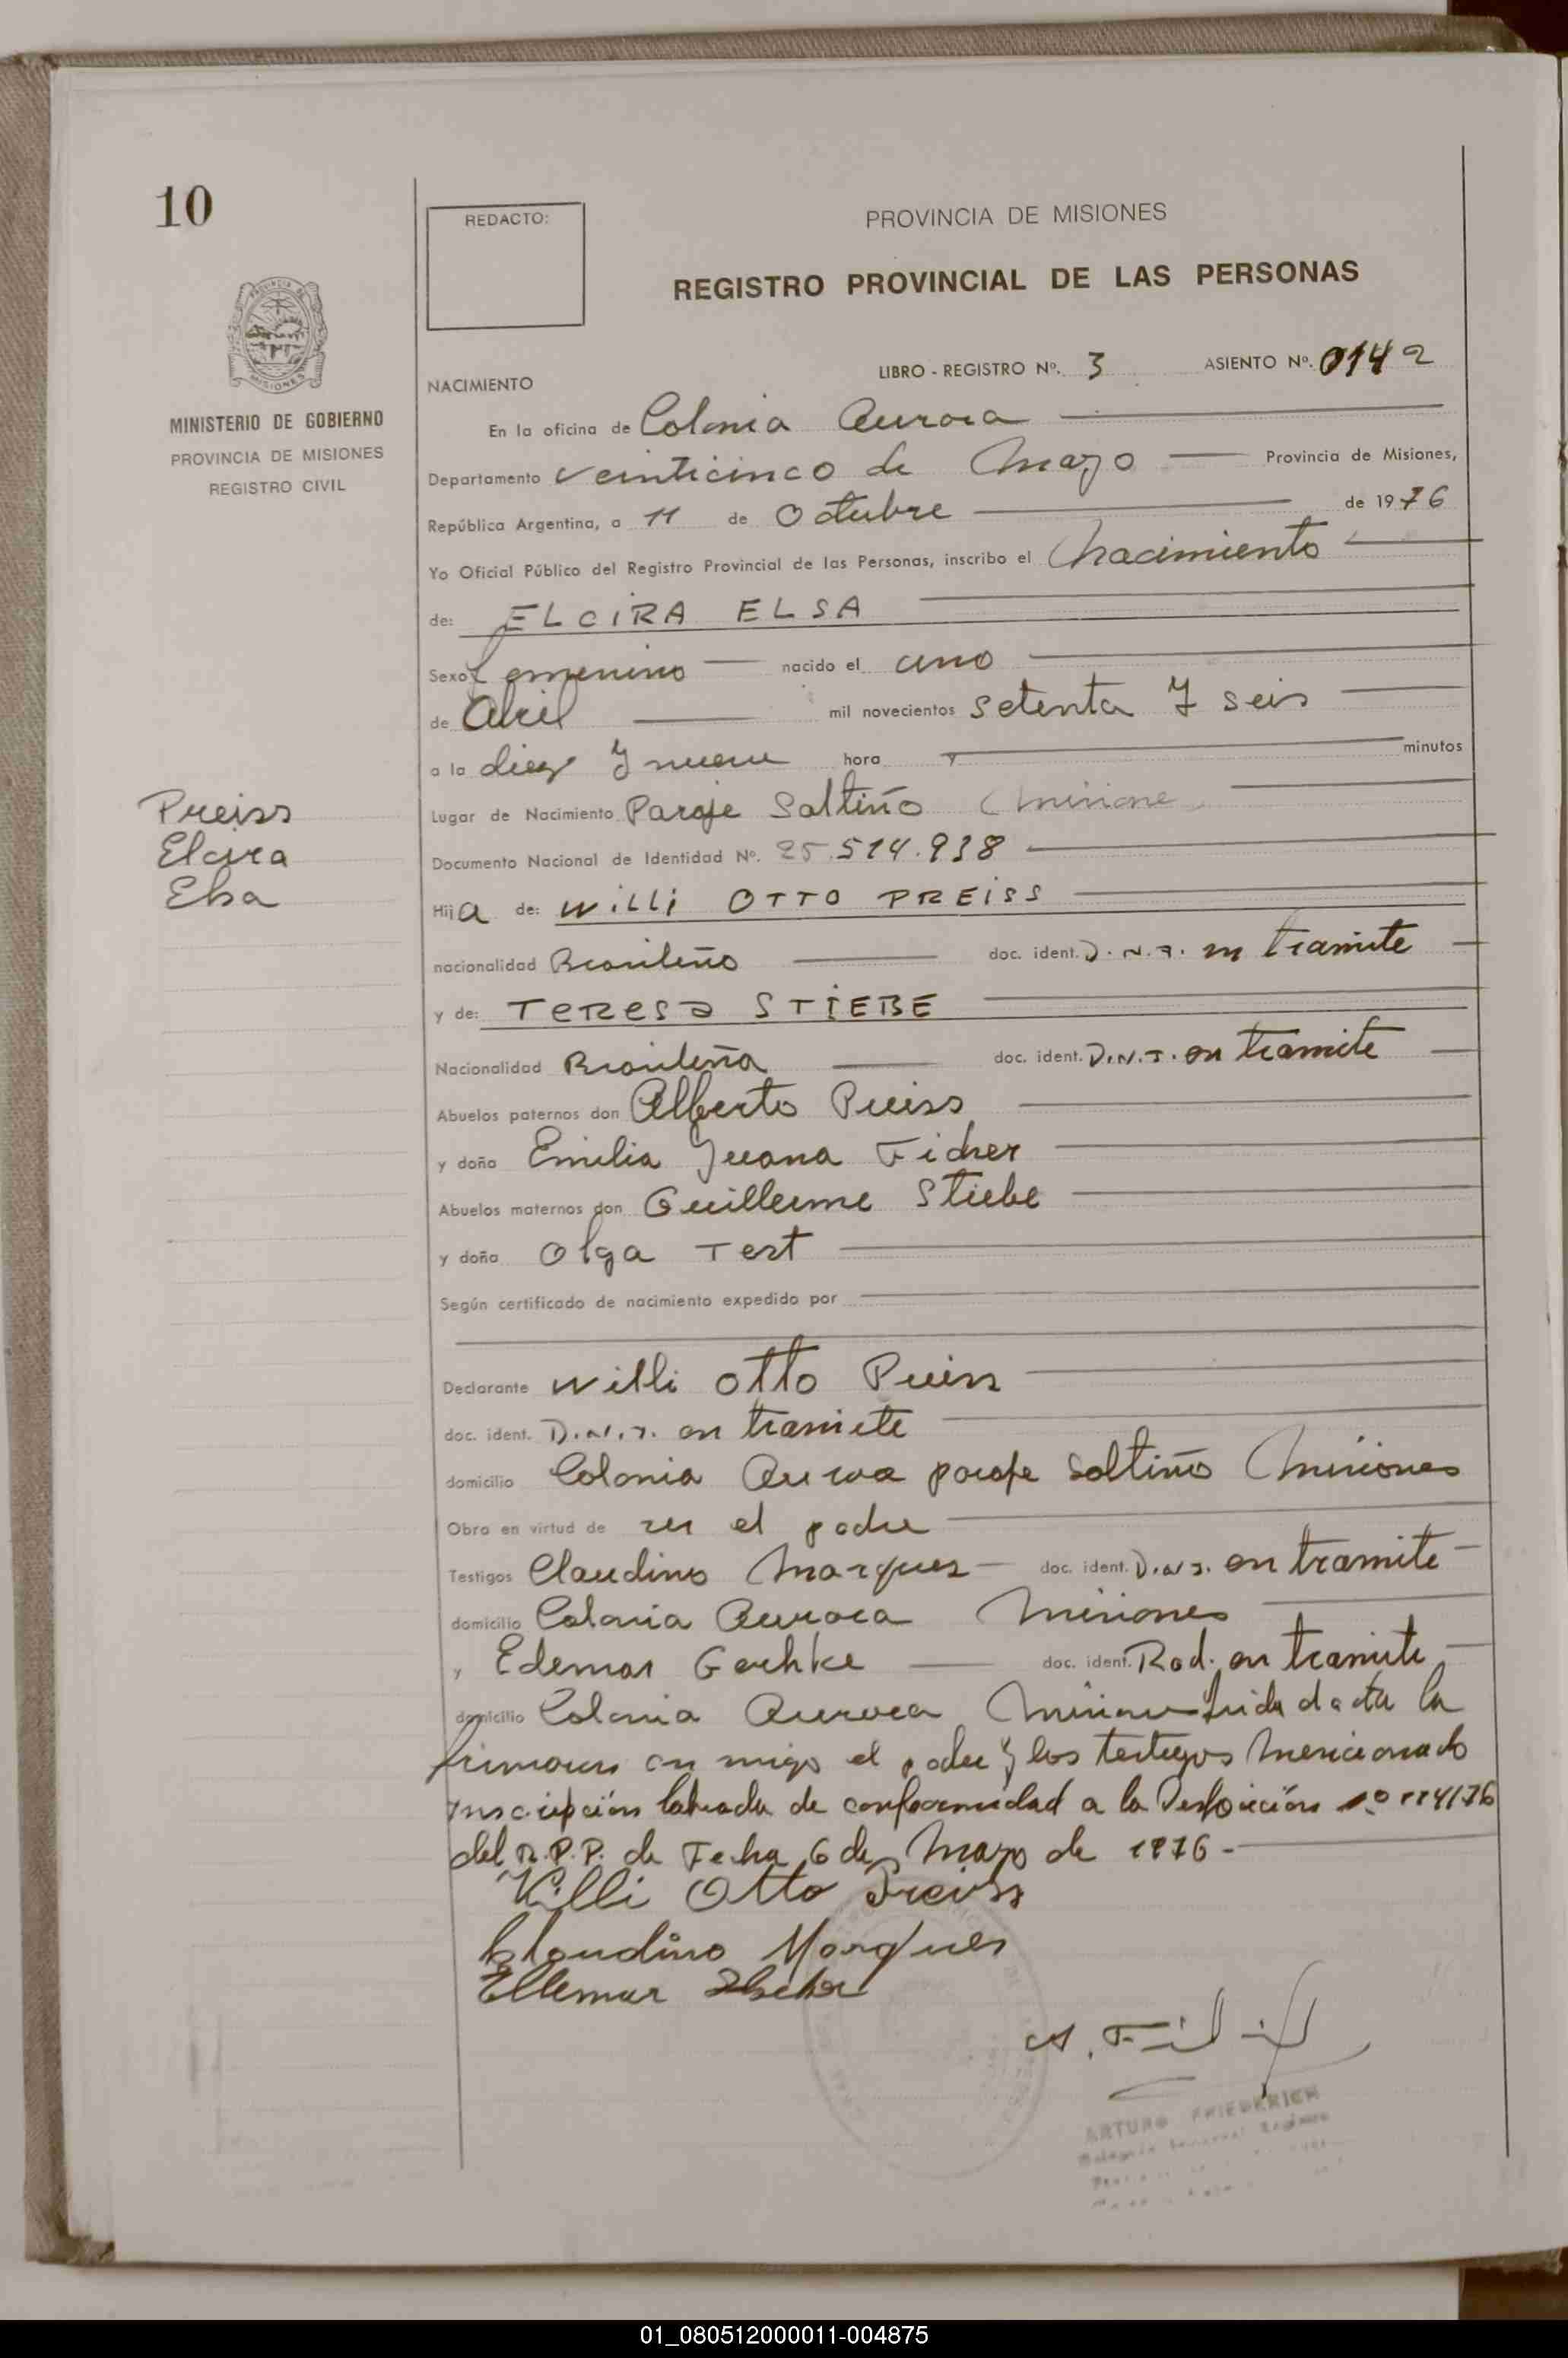 10
REDACTO:
PROVINCIA DE MISIONES
REGISTRO PROVINCIAL DE LAS PERSONAS
PROVINCIA DE
MISIONES
MINISTERIO DE GOBIERNO
PROVINCIA DE MISIONES
REGISTRO CIVIL
LIBRO - REGISTRO Nº. 3 ASIENTO Nº. 0142
NACIMIENTO
En la oficina de Colonia Aurora
Departamento Veinticinco de Mayo Provincia de Misiones,
República Argentina, a 11 de Octubre de 1976
Yo Oficial Público del Registro Provincial de las Personas, inscribo el Nacimiento
de: ELCIRA ELSA
Sexo femenino nacido el uno
de Abril mil novecientos setenta y seis
a la diez y nueve hora minutos
Lugar de Nacimiento Paraje Saltiño Misiones
Preiss
Elcira
Elsa
Documento Nacional de Identidad Nº. 25.514.938
Hija de: WILLI OTTO PREISS
nacionalidad Brasileño doc. ident. D.N.I. en tramite
y de: TERESA STIEBE
Nacionalidad Brasileña doc. ident. D.N.I. en tramite
Abuelos paternos don Alberto Preiss
y doña Emilia Juana Ficher
Abuelos maternos don Guillerme Stiebe
y doña Olga Test
Según certificado de nacimiento expedido por
Declarante Willi Otto Preiss
doc. ident. D.N.I. en tramite
domicilio Colonia Aurora paraje Saltiño Misiones
Obra en virtud de ser el padre
Testigos Claudino Marques doc. ident. D.N.I. en tramite
domicilio Colonia Aurora Misiones
y Edemar Gerhke doc. ident. Rad. en tramite
domicilio Colonia Aurora Misiones leida el acta la
firman con migo el padre y los testigos mencionado
inscripción labrada de conformidad a la Disposición nº 114/76
del R.P.P. de Fecha 6 de Mayo de 1976 -
Willi Otto Preiss
Claudino Marques
Ellemar
A.
ARTURO FRIEDERICH
01_080512000011-004875